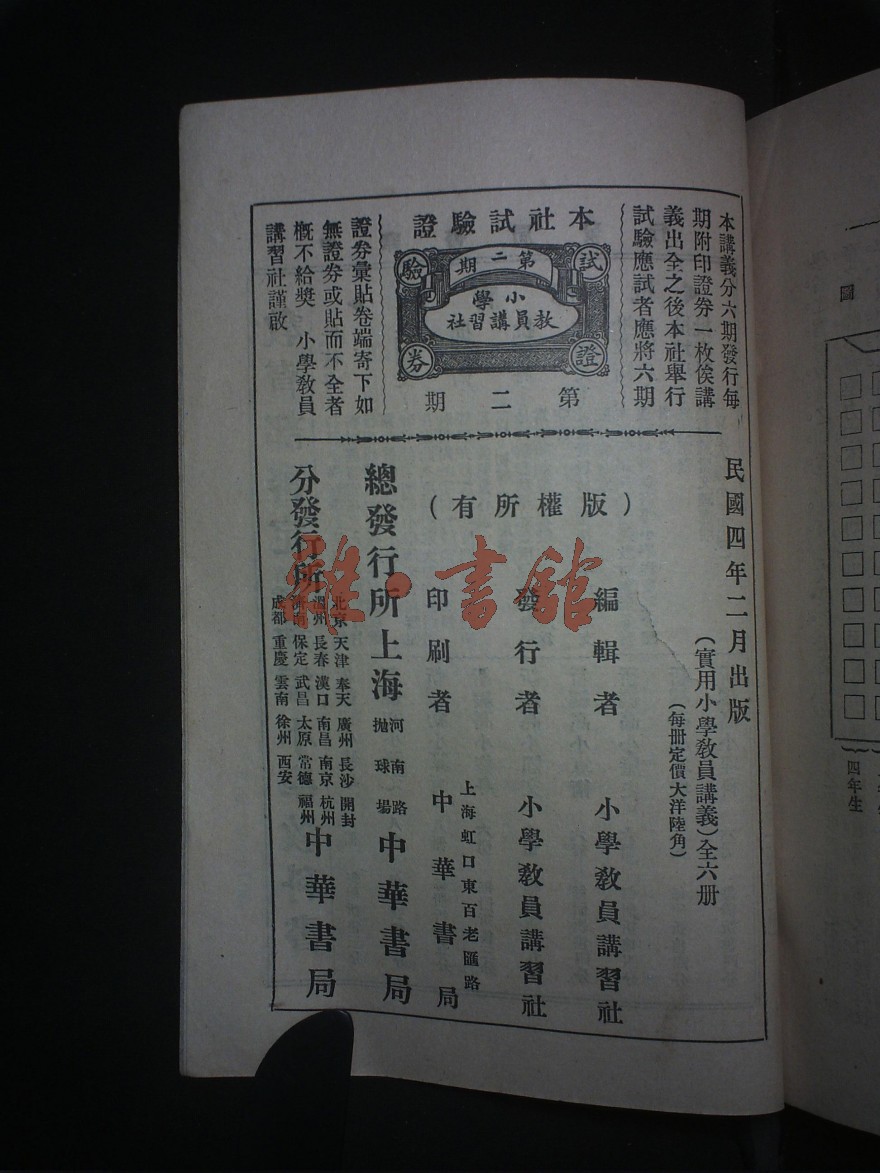 本講義分六期發行每
期附印證券一枚俟講
義出全之後本社舉行
試驗應試者應將六期
本社試驗證
試驗證券
第二期
小學
教員講習社
第二期
證券彙貼卷端寄下如
無證券或貼而不全者
概不給獎　小學教員
講習社謹啟
民國四年二月出版
（實用小學教員講義）全六册
（每册定價大洋陸角）
（版權所有）
編輯者　小學教員講習社
發行者　小學教員講習社
印刷者　上海虹口東百老匯路　中華書局
總發行所上海　河南路　拋球場　中華書局
分發行所
北京 天津 奉天 廣州 長沙 開封
溫州 長春 漢口 南昌 南京 杭州
濟南 保定 武昌 太原 常德 福州
成都 重慶 雲南 徐州 西安
中華書局
雜·書館
圖
四年生